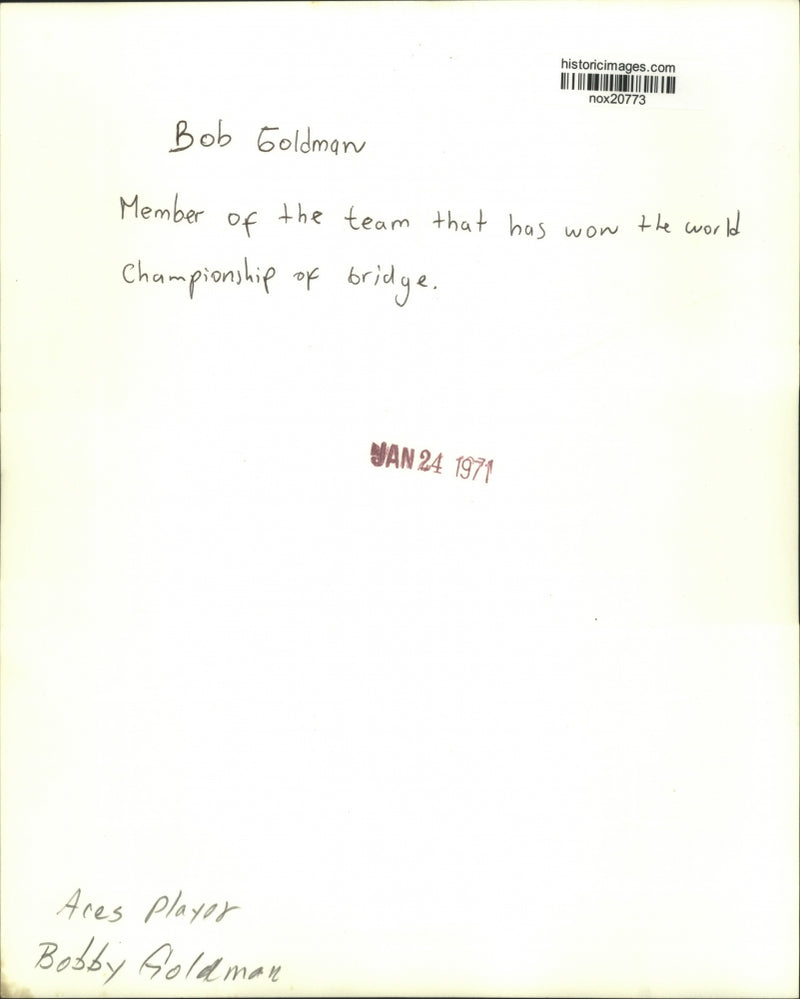 historicimages.com
nox20773
Bob Goldman
Member of the team that has won the world
Championship of bridge.
JAN 24 1971
Aces Player
Bobby Goldman